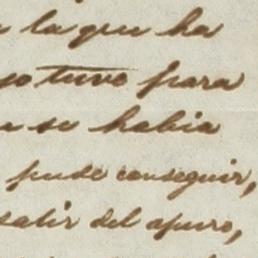 la que ha
tuvo para
se habia
pude conseguir,
salir del apuro,